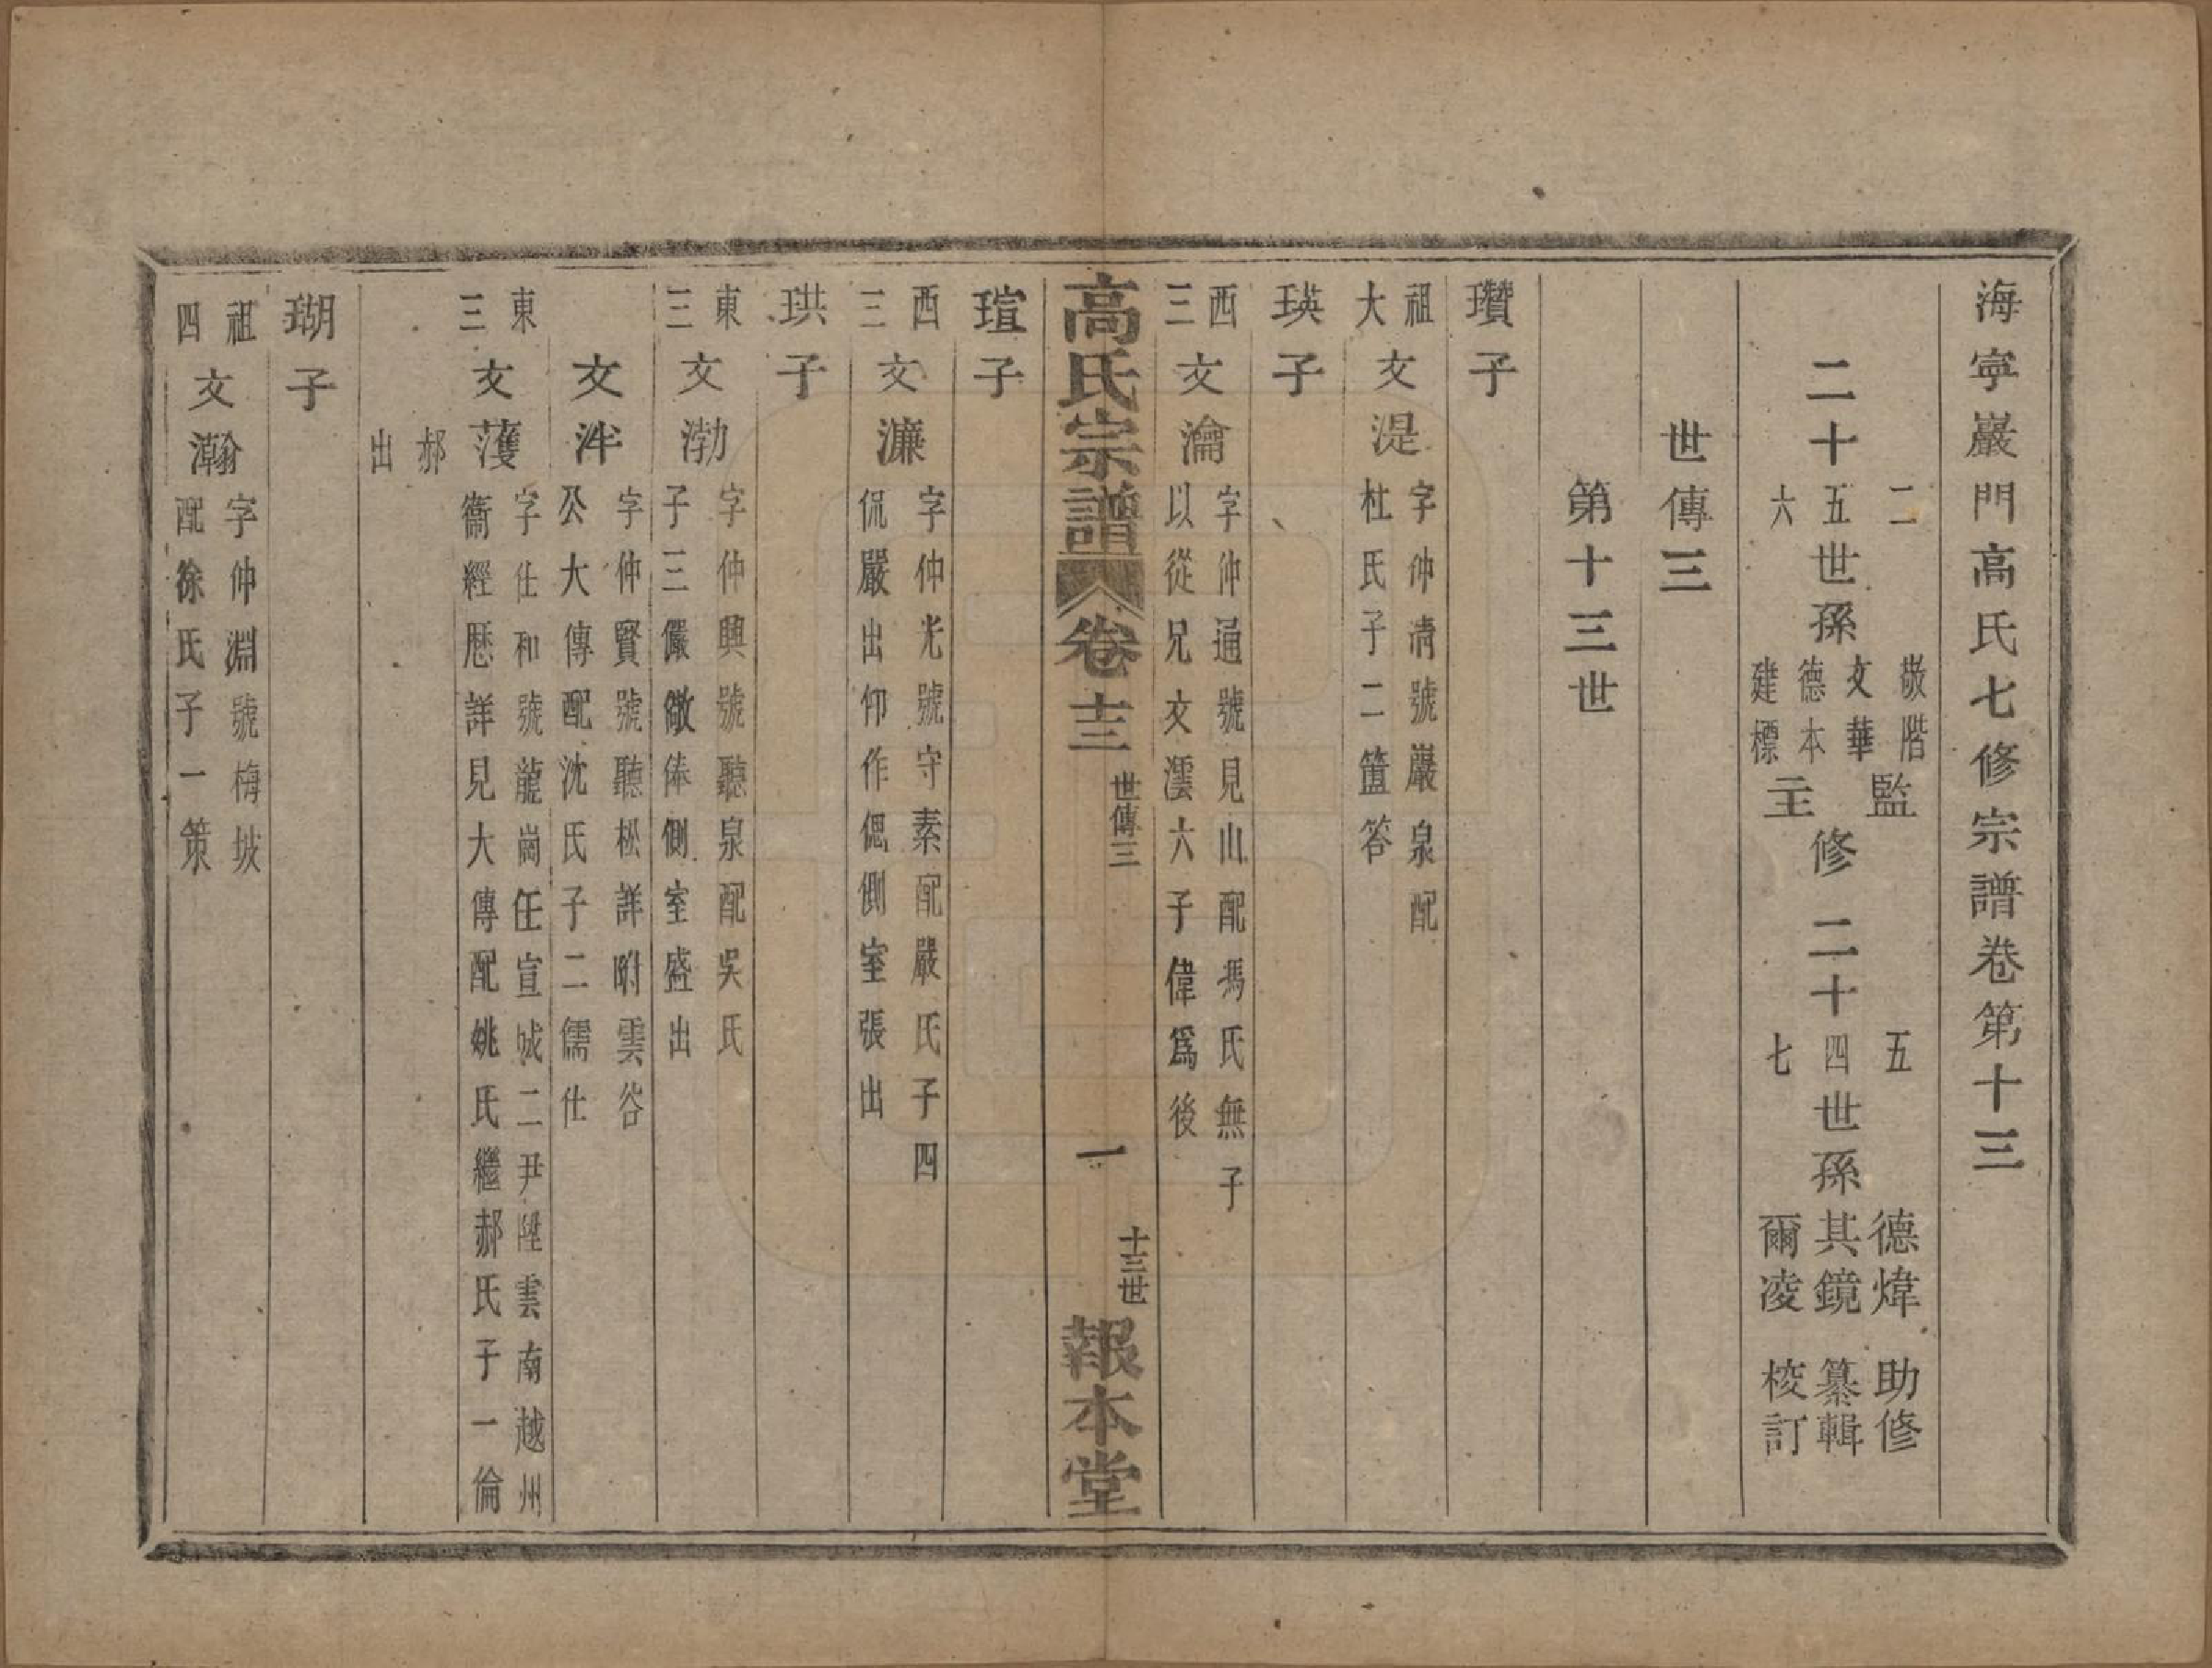 海寧巖門高氏七修宗譜卷第十三
二十
二
五
六
世孫
敬階
文華
德本
建標
監
主
修
二十
五
四
七
世孫
德煒 助修
其鏡 纂輯
爾凌 校訂
世傳三
第十三世
瓚子
祖大 文湜 字仲淸號巖泉配
杜氏子二簠簵
瑛子
西三 文瀹 字仲通號見山配馮氏無子
以從兄文澐六子偉爲後
高氏宗譜 卷十三 世傳三 一 十三世 報本堂
瑄子
西三 文濂 字仲光號守素配嚴氏子四
侃嚴出仰作偲側室張出
珙子
東三 文渤 字仲興號聽泉配吳氏
子三儼儆俸側室盛出
文泮 字仲賢號聽松詳附雲谷
公大傳配沈氏子二儒仕
東三 文頀 字仕和號龍崗任宣城二尹陞雲南越州
衞經歷詳見大傳配姚氏繼郝氏子一倫
郝
出
瑚子
祖四 文瀚 字仲淵號梅坡
配徐氏子一策